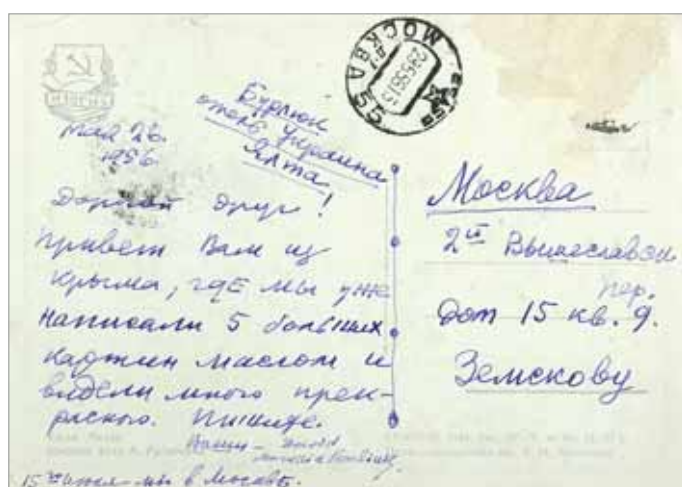 МОСКВА 55
Май 26.
1956.
Бурлюк
отель Украина
Ялта
Дорогой друг!
привет Вам из
Крыма, где мы уже
написали 5 больших
картин маслом и
видели много прек-
расного. Пишите.
Наши –
15го июня – мы в Москве.
Москва
2й Вышеславов
пер.
Дом 15 кв. 9.
Земскову